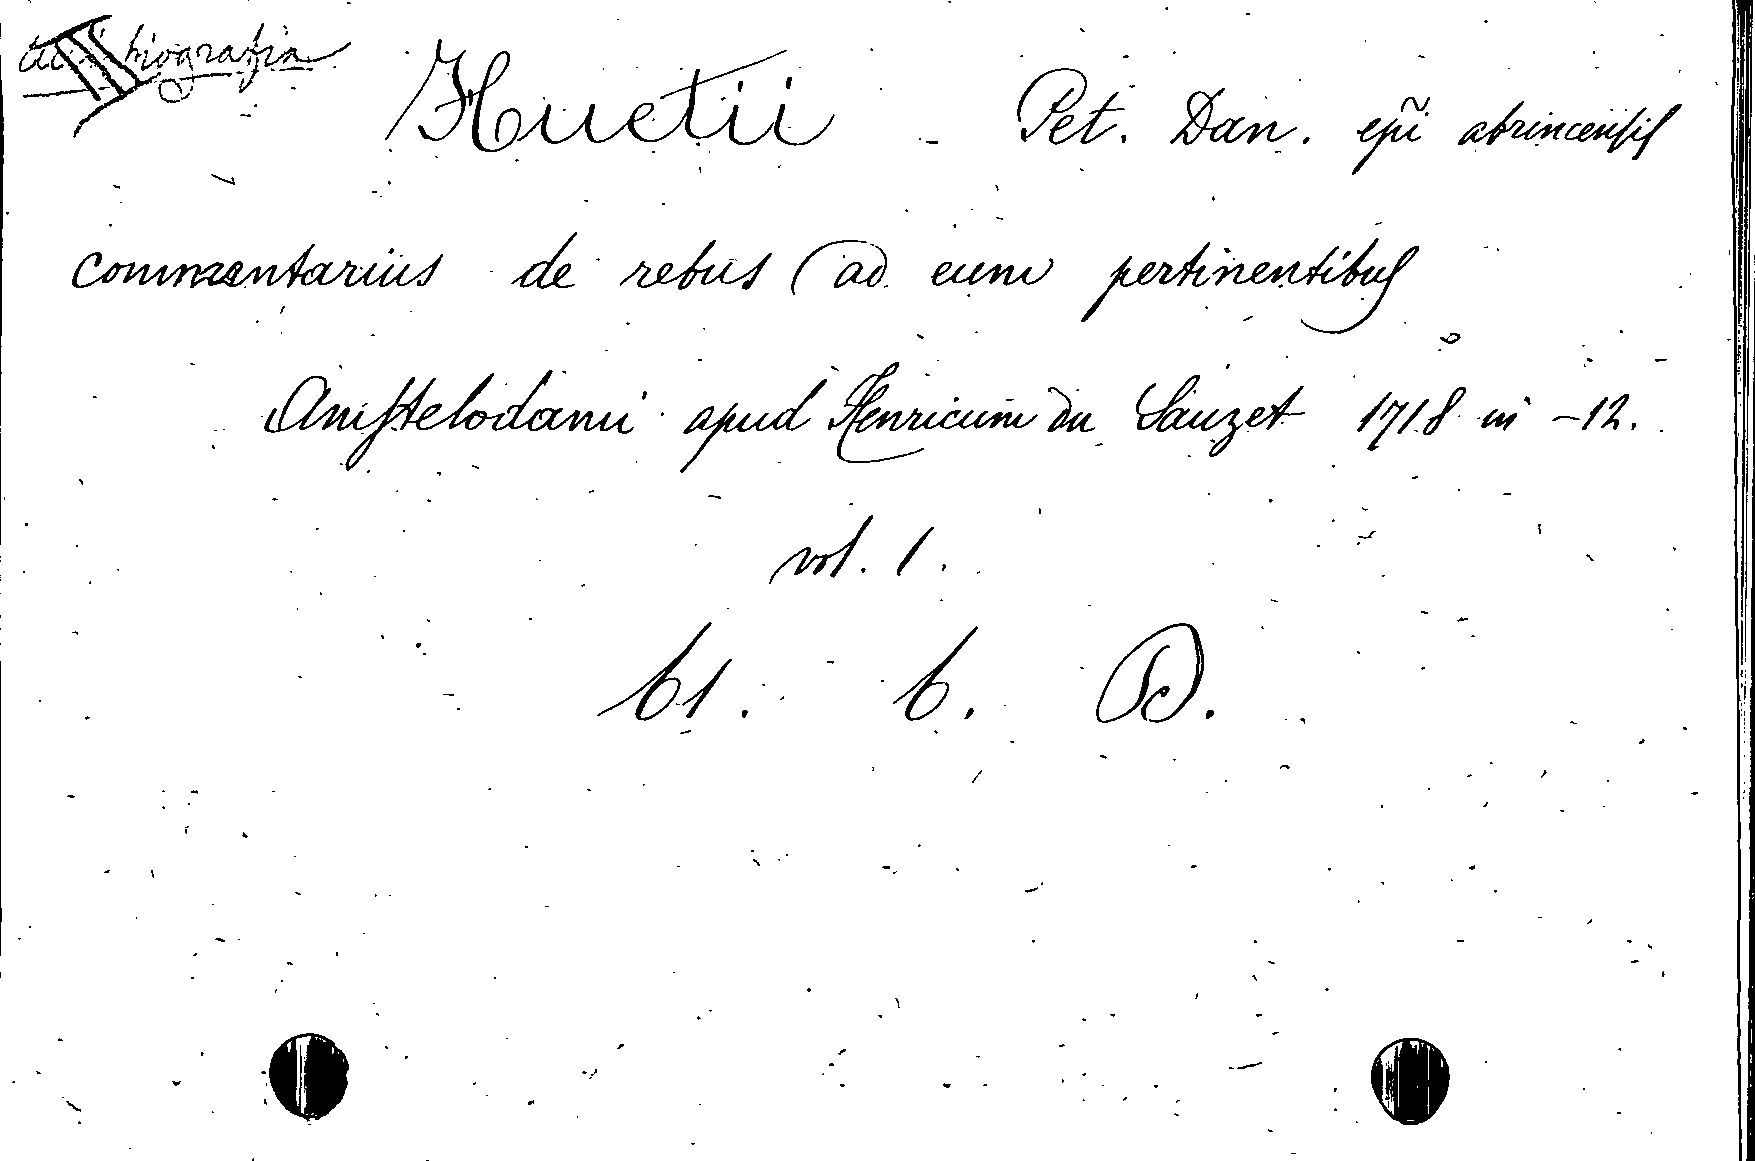 biografia
Huetii - Pet. Dan. epĩ abrincensis
commentarius de rebus ad eum pertinentibus
Amstelodami apud Henricum du Sauzet 1718 in -12.
vol. 1.
61. 6. D.